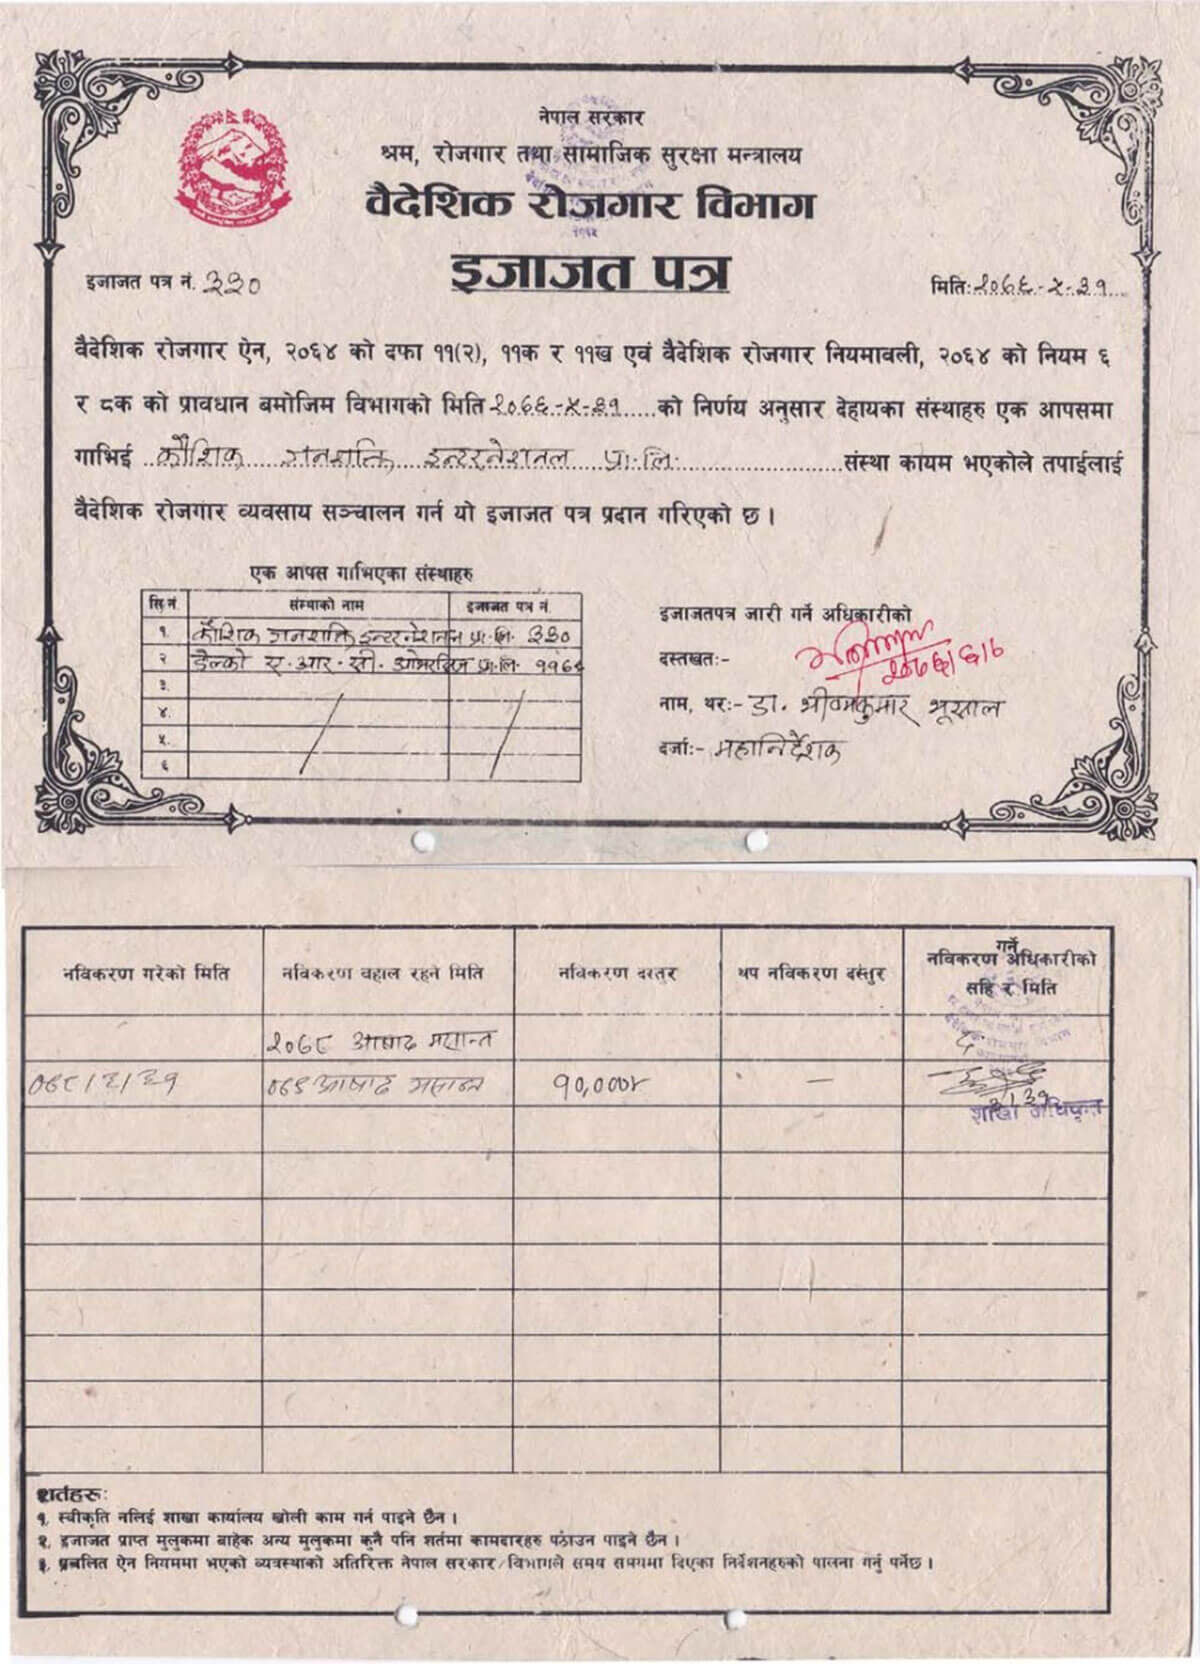 नेपाल सरकार
श्रम, रोजगार तथा सामाजिक सुरक्षा मन्त्रालय
वैदेशिक रोजगार विभाग
इजाजत पत्र
इजाजत पत्र नं. ३३०
मिति:
वैदेशिक रोजगार ऐन, २०६४ को दफा ११(२), ११क र ११ख एवं वैदेशिक रोजगार नियमावली, २०६४ को नियम ६
र ८क को प्रावधान बमोजिम विभागको मिति को निर्णय अनुसार देहायका संस्थाहरु एक आपसमा
गाभिई कौशिक जनशक्ति इन्टरनेशनल प्रा.लि. संस्था कायम भएकोले तपाईलाई
वैदेशिक रोजगार व्यवसाय सञ्चालन गर्न यो इजाजत पत्र प्रदान गरिएको छ ।
एक आपस गाभिएका संस्थाहरु
सि.नं. संस्थाको नाम इजाजत पत्र नं
१. कौशिक जनशक्ति इन्टरनेशनल प्रा.लि. ३३०
२ ए.आर.सी. ओभरसिज प्रा.लि.
३.
४.
५.
६
इजाजतपत्र जारी गर्ने अधिकारीको
दस्तखतः-
नाम, थरः- डा. भीष्मकुमार भूसाल
दर्जाः- महानिर्देशक
नविकरण गरेको मिति नविकरण वहाल रहने मिति नविकरण दस्तुर थप नविकरण दस्तुर नविकरण गर्ने अधिकारीको
सहि र मिति
२०७८ आषाढ मसान्त
०७८/३/३१ ०७९ आषाढ मसान्त १०,०००४ -
शाखा अधिकृत
शर्तहरुः
१. स्वीकृति नलिई शाखा कार्यालय खोली काम गर्न पाइने छैन ।
२. इजाजत प्राप्त मुलुकमा बाहेक अन्य मुलुकमा कुनै पनि शर्तमा कामदारहरु पठाउन पाइने छैन ।
३. प्रचलित ऐन नियममा भएको व्यवस्थाको अतिरिक्त नेपाल सरकार/विभागले समय समयमा दिएका निर्देशनहरुको पालना गर्नु पर्नेछ ।